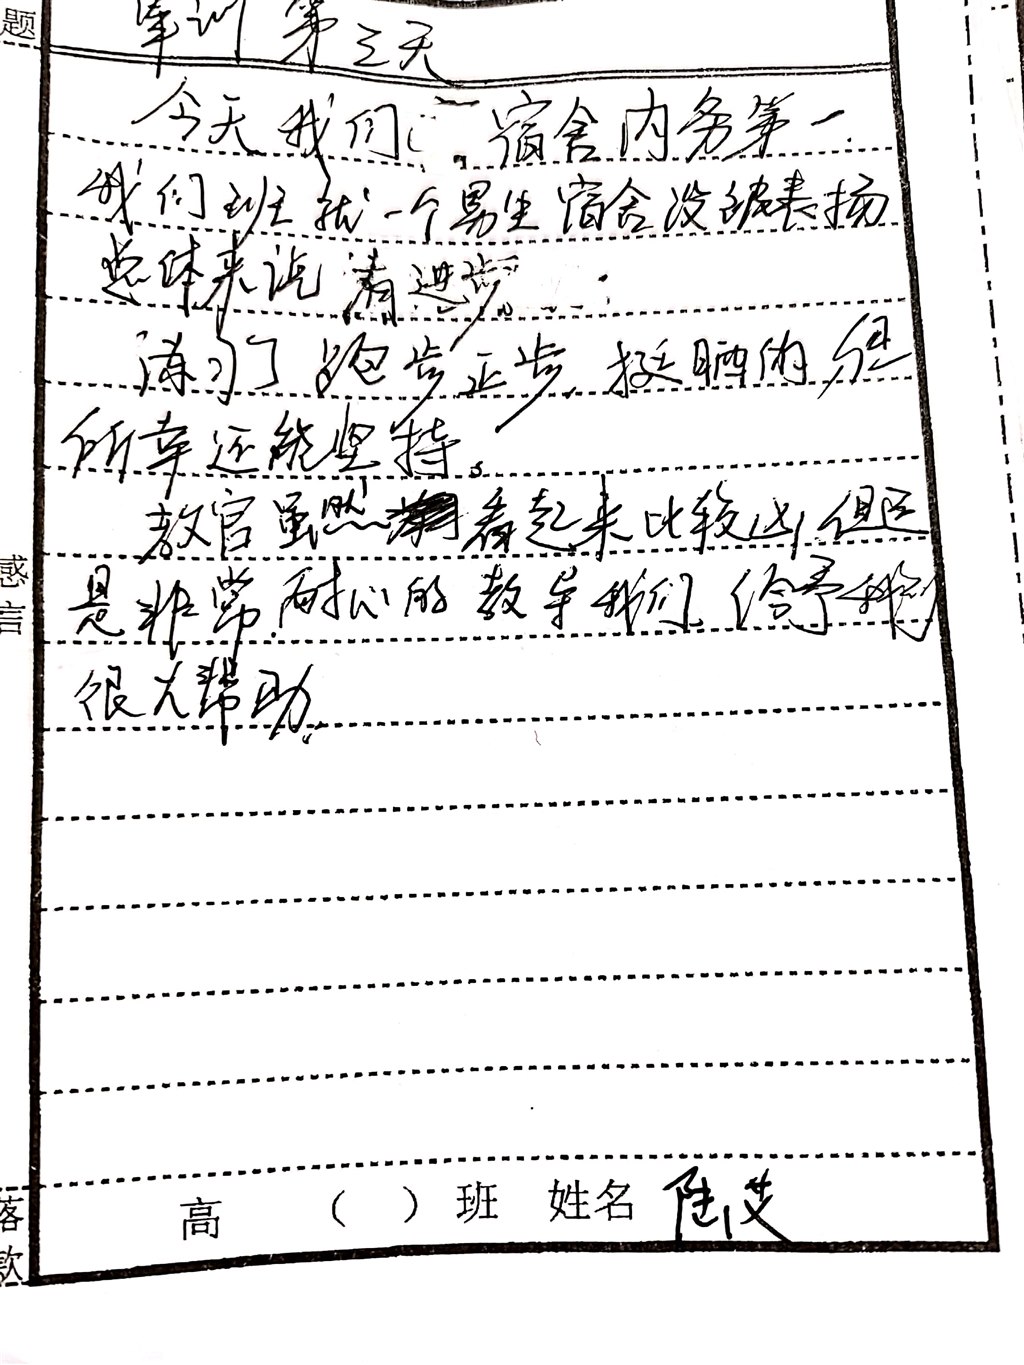 题 军训第三天
今天我们 宿舍内务第一
我们班就一个男生宿舍没被表扬
总体来说 有进步。
练习了跑步正步,挺晒的,但
所幸还能坚持。
教官虽然 看起来比较凶,但还
是非常耐心的教导我们,给予我们
很大帮助。
感言
落款 高 ( ) 班 姓名 陆